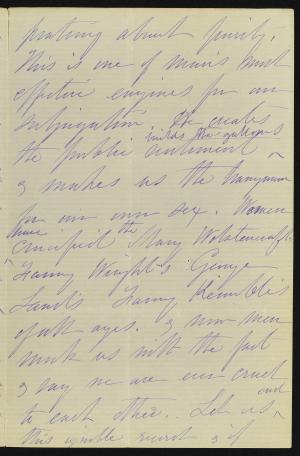 prating about purity.
This is one of man's most
effective engines for our
subjugation. He creates
the public sentiment, builds the gallows
& makes us the hangman
for our own sex. Women
have crucified the Mary Wolstencrafts
Fanny Wright's George
Sand's Fanny Kemble's
of all ages. & now men
mock us with the fact
& say we are ever cruel
to each other. Let us end
this ignoble record & if